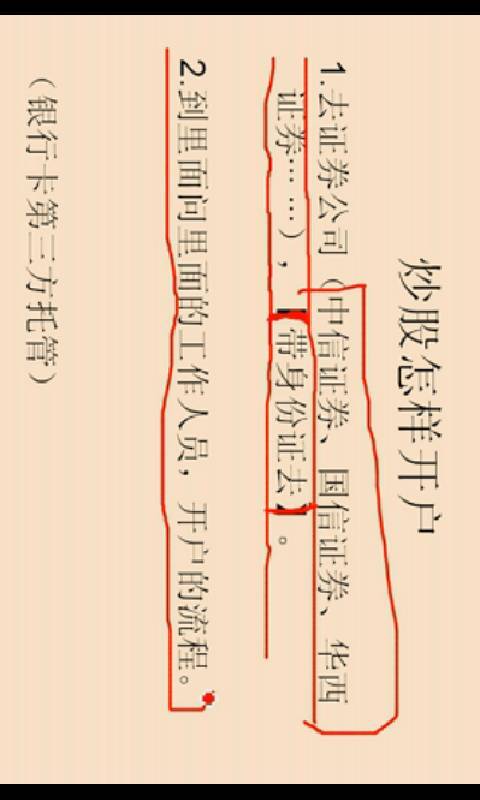 炒股怎样开户
1.去证券公司（中信证券、国信证券、华西
证券……），【带身份证去】。
2.到里面问里面的工作人员，开户的流程。
（银行卡第三方托管）